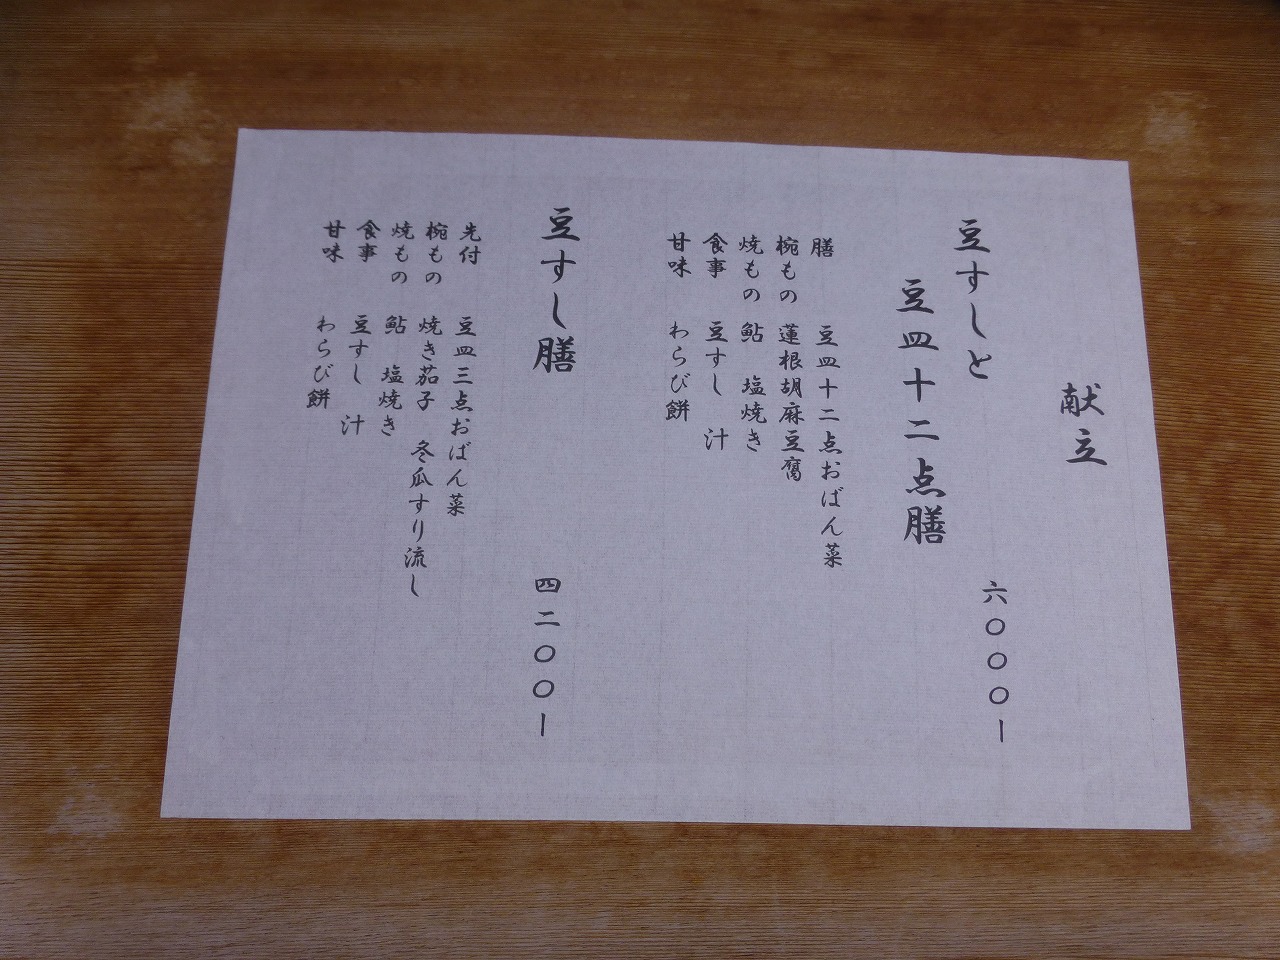 献立
豆すしと
豆皿十二点膳
六〇〇〇ー
膳 豆皿十二点おばん菜
椀もの 蓮根胡麻豆腐
焼もの 鮎 塩焼き
食事 豆すし 汁
甘味 わらび餅
豆すし膳
四二〇〇ー
先付 豆皿三点おばん菜
椀もの 焼き茄子 冬瓜すり流し
焼もの 鮎 塩焼き
食事 豆すし 汁
甘味 わらび餅